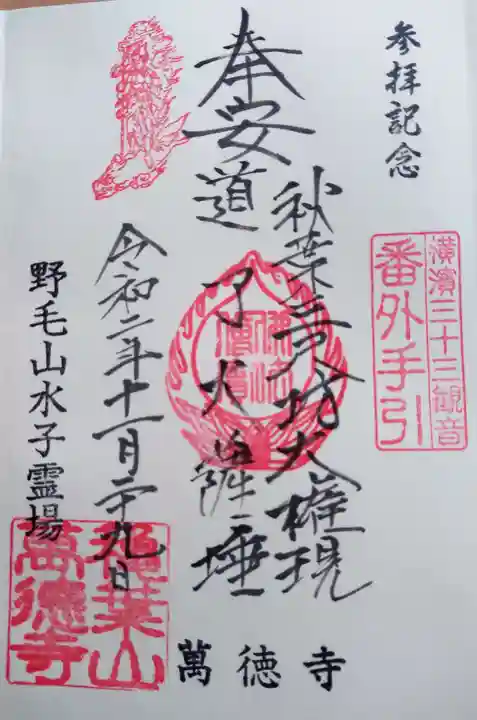 参拝記念
横濱三十三観音
番外手引
奉安
秋葉三尺坊大権現
道了大薩埵
令和二年十一月二十九日
野毛山水子霊場
萬徳寺
葉山
萬徳寺